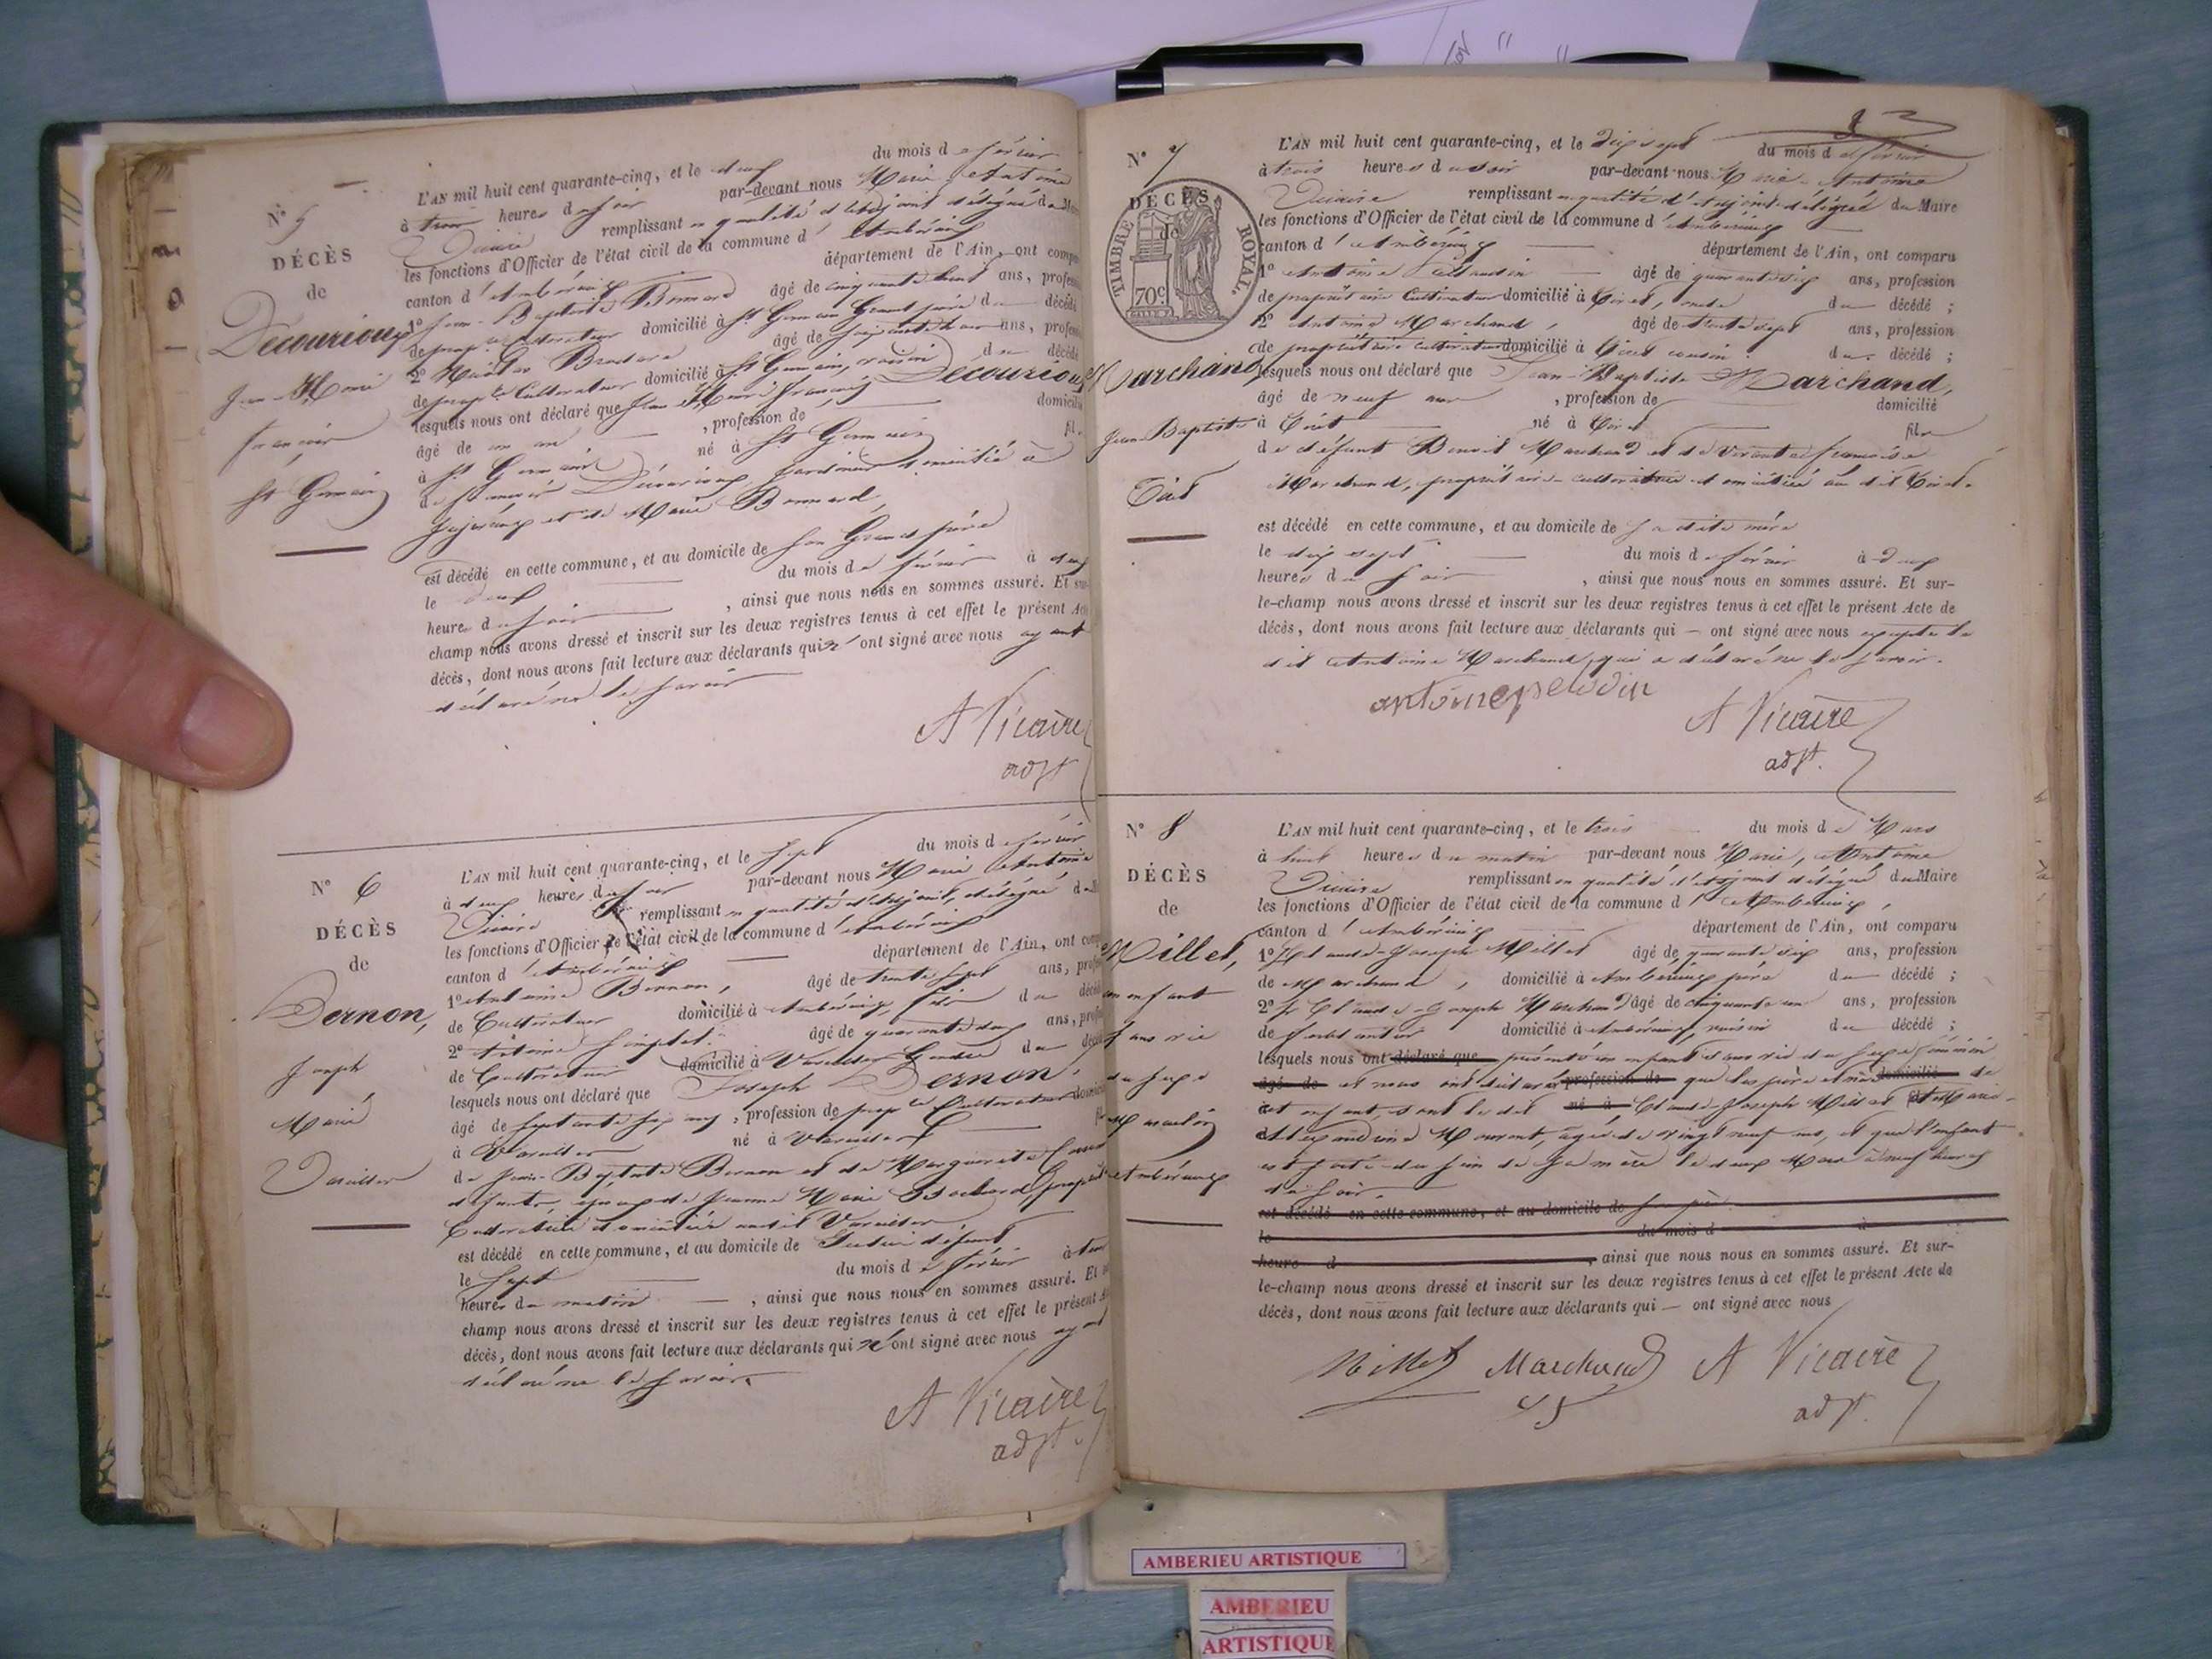 N° 5
DÉCÈS
de
Décourioux
Jean Marie
françois
St Germain
L'AN mil huit cent quarante-cinq, et le deux du mois de février
à trois heures du soir par-devant nous Marie Antoine
Vicaire remplissant en qualité d'adjoint délégué du Maire
les fonctions d'Officier de l'état civil de la commune d' Ambérieux
canton d' Ambérieux département de l'Ain, ont comp
1° Jean-Baptiste Bonnard âgé de cinquante huit ans, profes
domicilié à St Germain Grand père du décédé
2° âgé de ans, profes
Cultivateur domicilié à St Germain, voisin du décédé
lesquels nous ont déclaré que Jean Marie françois Décourioux
âgé de un an , profession de domicilié
à St Germain né à St Germain fil
de Décourioux, domicilié à
et de Marie Bonnard,
est décédé en cette commune, et au domicile de son Grand père
le deux du mois de février à deux
heures du soir , ainsi que nous nous en sommes assuré. Et sur-
champ nous avons dressé et inscrit sur les deux registres tenus à cet effet le présent Acte
décès, dont nous avons fait lecture aux déclarants qui n' ont signé avec nous ayant
déclaré ne le savoir
A Vicaire
adjt
N° 6
DÉCÈS
de
Bernon,
Joseph
Marié
Vareilles
L'AN mil huit cent quarante-cinq, et le sept du mois de février
à deux heures du soir par-devant nous Marie Antoine
Vicaire remplissant en qualité d'adjoint, délégué du
les fonctions d'Officier de l'état civil de la commune d'Ambérieux
canton d'Ambérieux département de l'Ain, ont comp
1° Antoine Bernon, âgé de trente sept ans, profes
de Cultivateur domicilié à Ambérieux, fils du décédé
2° Antoine âgé de quarante deux ans, profes
de Cultivateur domicilié à Vareilles, Gendre du décédé
lesquels nous ont déclaré que Joseph Bernon,
âgé de septante six ans, profession de prop.re Cultivateur domicilié
à Vareilles né à Vareilles
de Jean-Baptiste Bernon et de Marguerite
défunts, époux de Jeanne Marie Bochard, propriét
Cultivatrice domiciliée audit Vareilles
est décédé en cette commune, et au domicile de dudit défunt
le sept du mois de février à
heures du matin , ainsi que nous nous en sommes assuré. Et
champ nous avons dressé et inscrit sur les deux registres tenus à cet effet le présent
décès, dont nous avons fait lecture aux déclarants qui n' ont signé avec nous ayant
déclaré ne le savoir.
A Vicaire
adjt.
N° 7
DÉCÈS
de
TIMBRE ROYAL.
70c.
Marchand,
Jean-Baptiste
Tiret
L'AN mil huit cent quarante-cinq, et le dix sept du mois de février
à trois heures du soir par-devant nous Marie-Antoine
Vicaire remplissant en qualité d'adjoint délégué du Maire
les fonctions d'Officier de l'état civil de la commune d'Ambérieux
canton d'Ambérieux département de l'Ain, ont comparu
1° Antoine âgé de quarante six ans, profession
de propriétaire Cultivateur domicilié à Tiret, oncle du décédé ;
2° Antoine Marchand, âgé de trente sept ans, profession
de propriétaire cultivateur domicilié à Tiret cousin du décédé ;
lesquels nous ont déclaré que Jean-Baptiste Marchand,
âgé de neuf ans , profession de domicilié
à Tiret né à Tiret fils
de défunt Benoit Marchand et de vivante françoise
Marchand, propriétaire-cultivatrice domiciliée au dit Tiret.
est décédé en cette commune, et au domicile de sa dite mère
le dix sept du mois de février à deux
heures du soir , ainsi que nous nous en sommes assuré. Et sur-
le-champ nous avons dressé et inscrit sur les deux registres tenus à cet effet le présent Acte de
décès, dont nous avons fait lecture aux déclarants qui — ont signé avec nous excepté le
dit Antoine Marchand, qui a déclaré ne le savoir.
A Vicaire
adjt.
N° 8
DÉCÈS
de
Millet,
un enfant
sans vie
du sexe
Masculin
Ambérieux
L'AN mil huit cent quarante-cinq, et le trois du mois de Mars
à huit heures du matin par-devant nous Marie, Antoine
Vicaire remplissant en qualité d'adjoint délégué du Maire
les fonctions d'Officier de l'état civil de la commune d'Ambérieux,
canton d'Ambérieux département de l'Ain, ont comparu
1° Claude-Joseph Millet âgé de quarante six ans, profession
de Marchand, domicilié à Ambérieux père du décédé ;
2° Claude-Joseph Marchand âgé de cinquante un ans, profession
de ferblantier domicilié à Ambérieux, voisin du décédé ;
lesquels nous ont déclaré que présenté un enfant sans vie du sexe féminin
âgé de et nous ont déclaré profession de que les père et mère domicilié de
cet enfant, sont le dit né à Claude-Joseph Millet et Marie-
Alexandrine âgée de vingt neuf ans, et que l'enfant
est sorti du sein de sa mère le deux Mars à neuf heures
du soir.
est décédé en cette commune, et au domicile de
le du mois d à
heure d , ainsi que nous nous en sommes assuré. Et sur-
le-champ nous avons dressé et inscrit sur les deux registres tenus à cet effet le présent Acte de
décès, dont nous avons fait lecture aux déclarants qui — ont signé avec nous
Millet Marchand A Vicaire
adjt.
AMBERIEU ARTISTIQUE
AMBERIEU
ARTISTIQUE